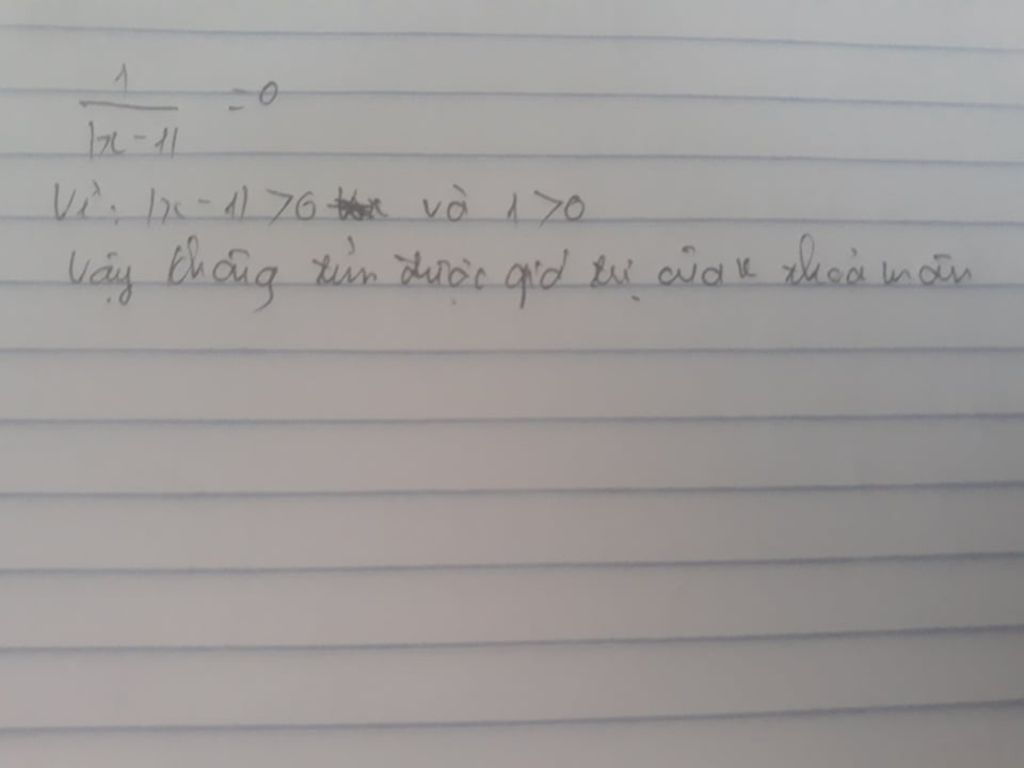 1
|x - 1| = 0
Vì: |x - 1| > 0 và 1 > 0
Vậy không tìm được giá trị của x thoả mãn